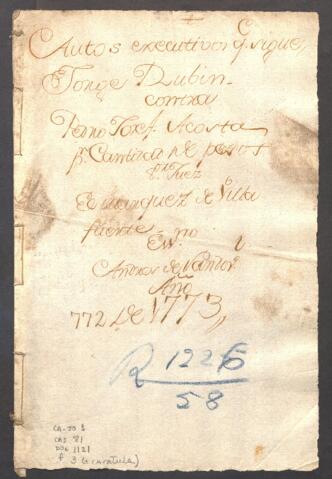 +
Autos executivos q. sigue
Jorge Dubin
contra
Pedro Josef Acosta
pr. Cantidad de pesos
Juez
El Marquez de Villa
fuerte
Esno.
Andres de
Año
772 de 1773
R 1226
58
CA-JO 1
CAJ 81
DOC 1121
f 3 (caratula)